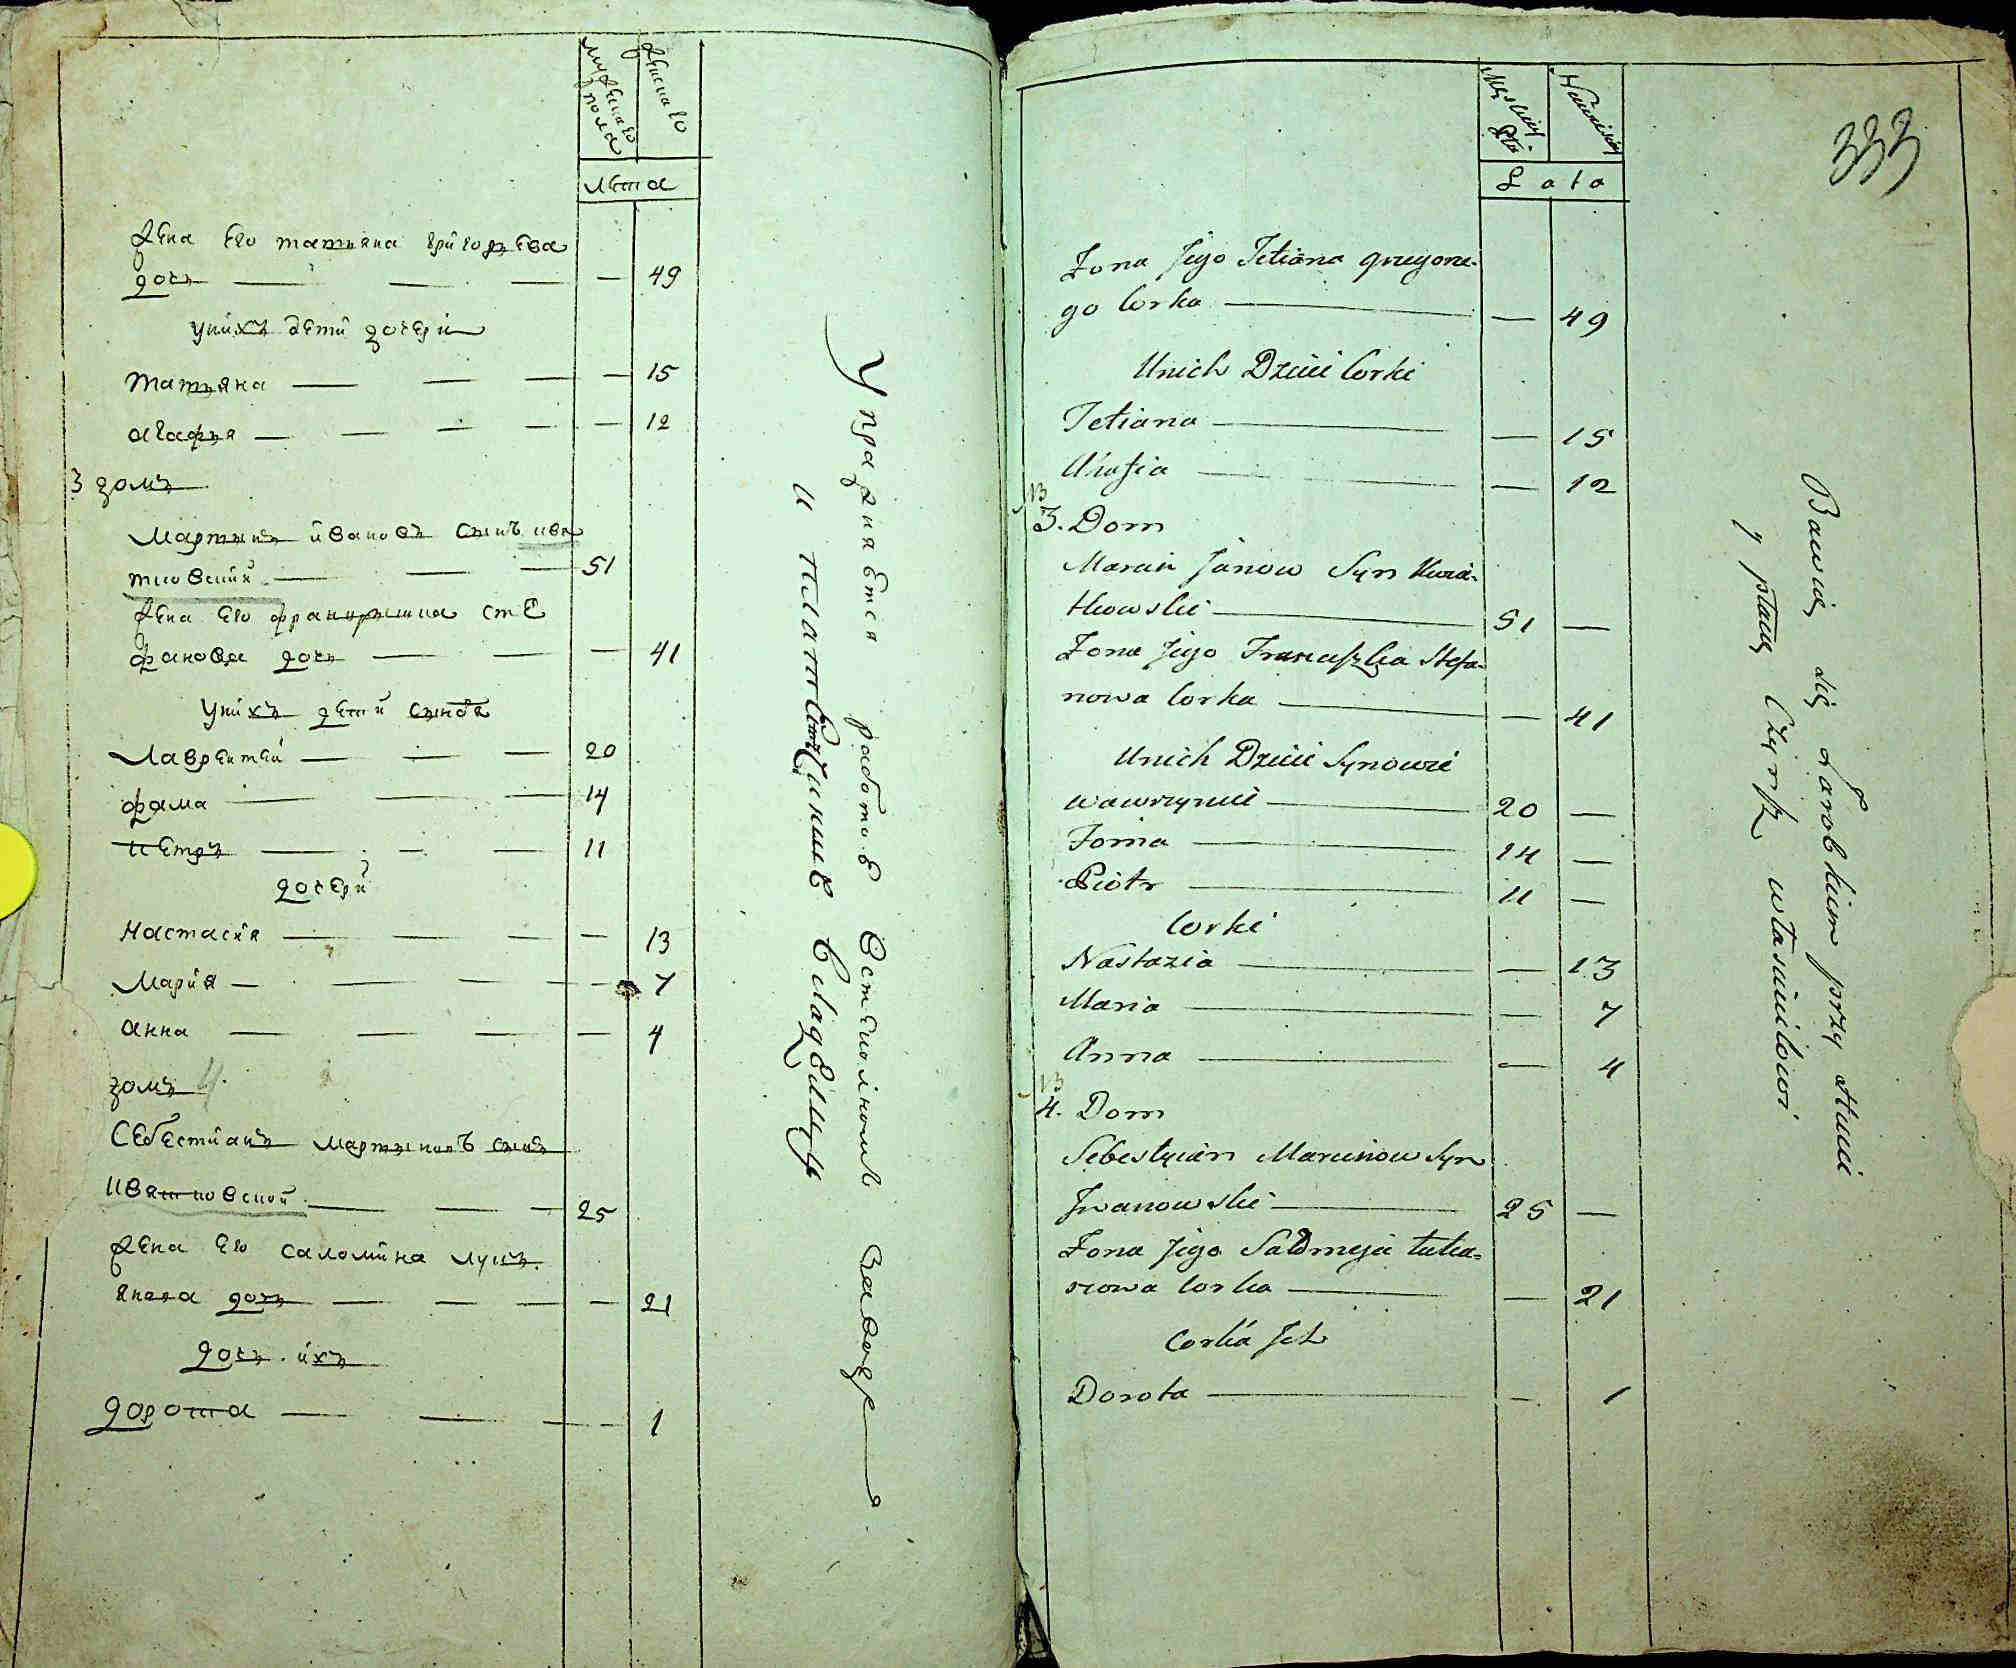 мужеска пола
женска го
лета
жена его татьяна григорьева
дочь — — — — 49
у них дети дочери
татьяна — — — — 15
агафья — — — — — 12
3 домъ
Мартынъ ивановъ сынъ ива
тковский — — — 51
жена его францишка сте
фанова дочь — — — — 41
у них дети сыновя
Лаврентей — — — 20
фома — — — 14
петръ — — — 11
дочери
настасия — — — — 13
Мария — — — — 7
анна — — — — 4
домъ 4
Себестианъ мартыновъ сынъ
ивятковской — — — 25
жена его саломина лукъ
янова дочь — — — — 21
дочь ихъ
дорота — — — — 1
Упражняется работою в стеколномъ заводе
и платетъ чиншъ владельцу
333
Męskiej Płci
Niewieściej
Lata
Żona Jego Tetiana Grzegorze-
go Corka — — 49
Unich Dzieci Corki
Tetiana — — 15
Ahafia — — 12
13
3. Dom
Marcin Janow Syn Kwia-
tkowski — 51 —
Żona Jego Franciszka Stefa-
nowa Corka — — 41
Unich Dzieci Synowie
Wawrzyniec — 20 —
Foma — 14 —
Piotr — 11 —
Corki
Nastazia — — 13
Maria — — 7
Anna — — 4
13
4. Dom
Sebestyian Marcinow Syn
Jwanowski — 25 —
Żona Jego Salomeja Łuka-
szowa Corka — — 21
Corka Jch
Dorota — — 1
Bawią się zarobkiem przy Hucie
y płacą Czynsz właścicielowi